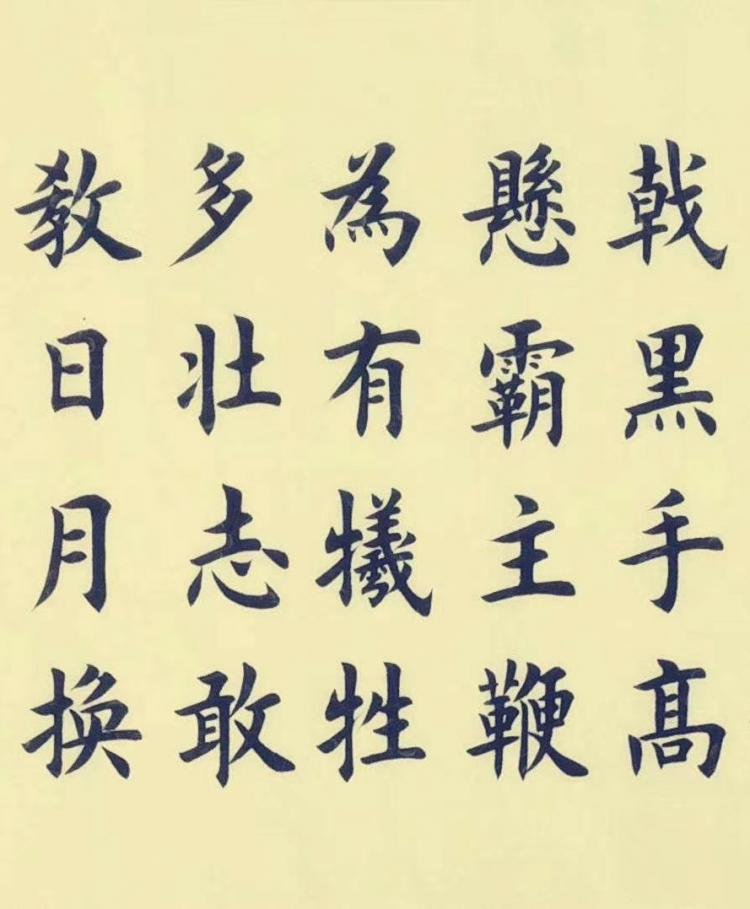 戟黑手髙
懸霸主鞭
為有犧牲
多壯志敢
教日月換